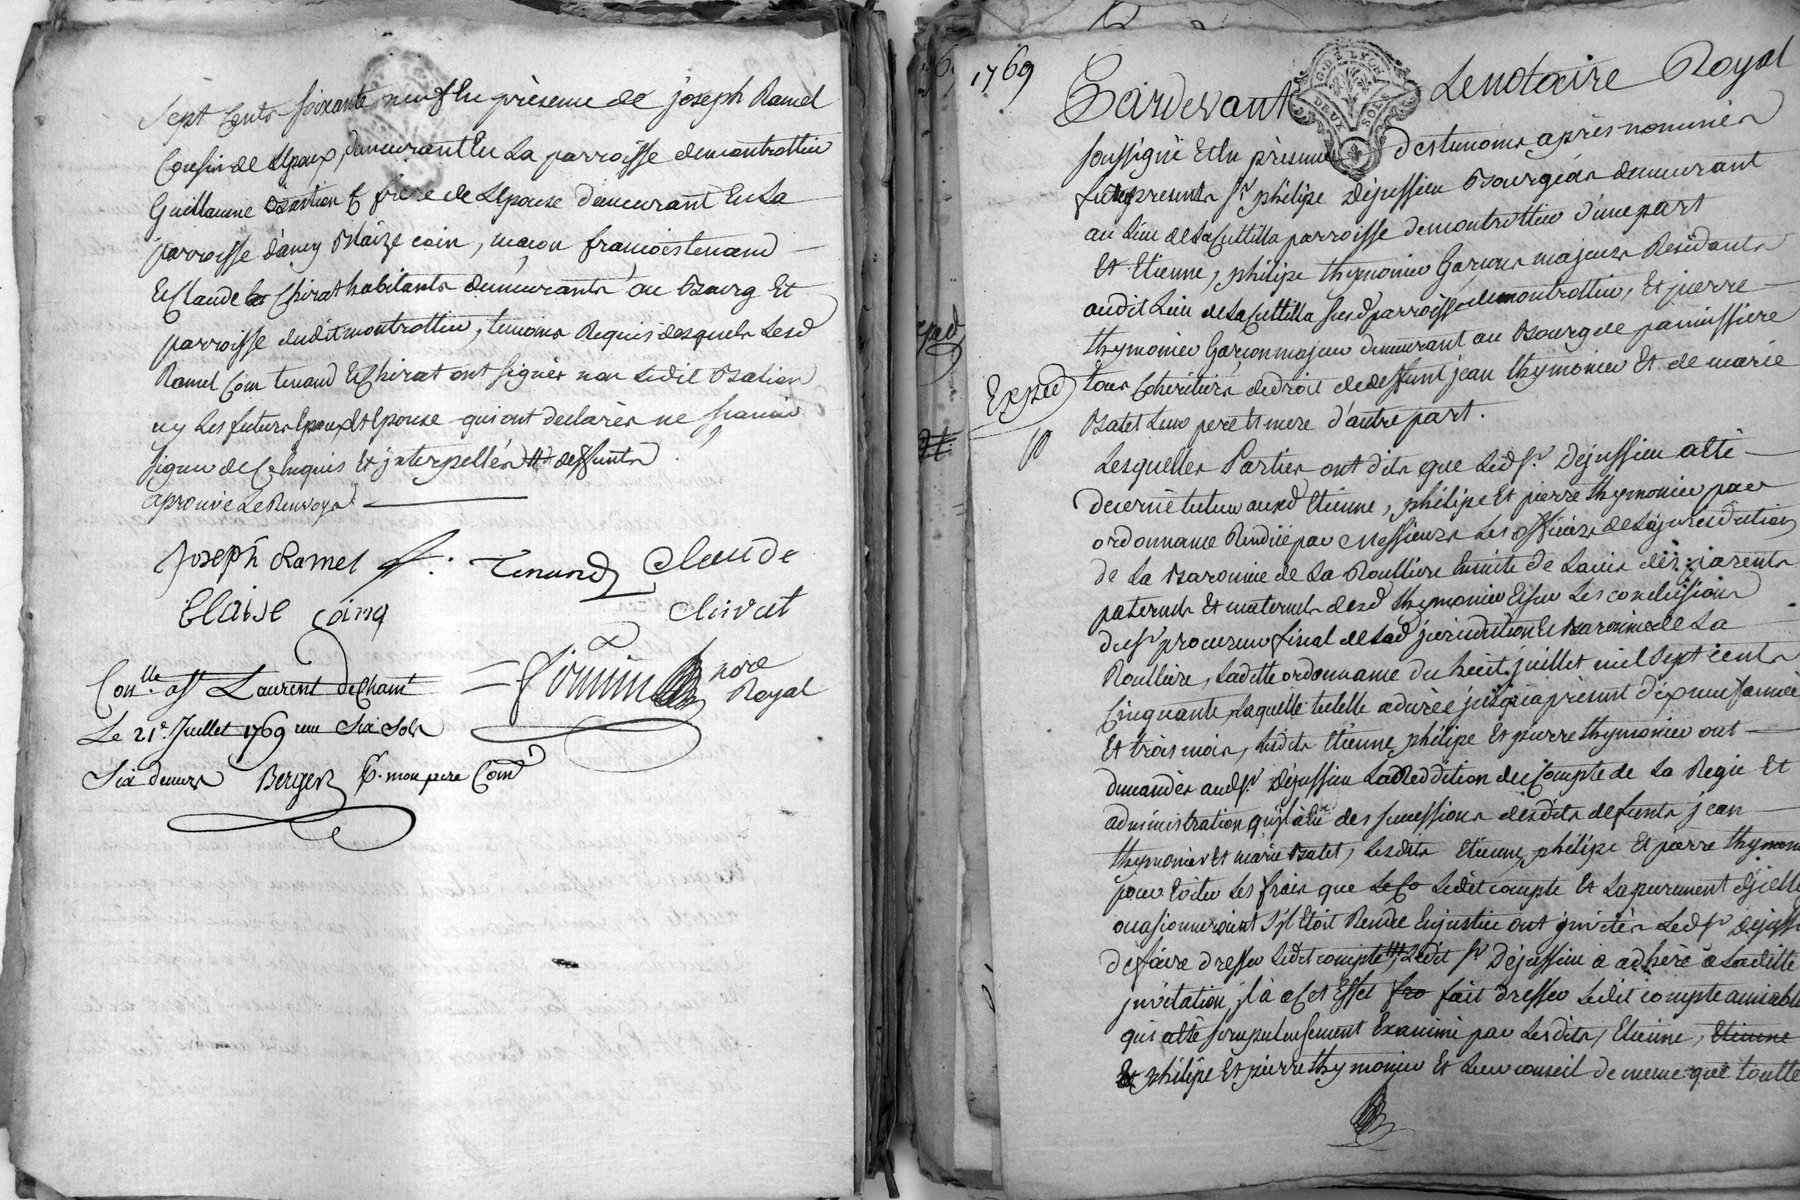 sept Cents soixante neuf En présence de joseph Ramel
Cousin de L'Epoux demeurant En La parroisse de montrottier
Guillaume Bastion frere de L'Epouse demeurant En La
parroisse d'ancy Blaize coin, maçon francois tenand
Et Claude Chirat habitants demeurants au Bourg Et
parroisse dudit montrottier, temoins Requis desquels Lesd
Ramel Coin tenand Et Chirat ont signés non Ledit Bastion
ny Les futurs Epoux Et Epouse qui ont déclarés ne scavoir
signer de Ce Enquis Et interpellés deffunts
aprouvé Le Renvoy
Joseph Ramel Tenand Claude
Blaise coing Chirat
Con.lle Laurent deChant
nore
Royal
Le 21e Juillet 1769 reçu Six Sols
Six deniers Berger p. mon pere Com
1769
G. DE LYON
DEUX SOLS
Pardevant Le notaire Royal
soussigné Et En présence des temoins après nommés
furent presents Sr philipe Déjussieu Bourgeois demeurant
au Lieu de La parroisse de montrottier d'une part
Et Etienne, philipe thymonier Garçons majeurs Residants
audit Lieu de La susd parroisse de montrottier, Et pierre
thymonier Garçon majeur demeurant au Bourg de panissiere
Exped
tous Cohéritiers de droit de deffunt jean thymonier Et de marie
Batet Leur pere Et mere d'autre part.
Lesquelles Parties ont dit que Led Sr. Déjussieu a été
decerné tuteur auxd Etienne, philipe Et pierre thymonier par
ordonnance Rendüe par Messieurs Les officiers de La jurisdiction
de La Baronnie de La Roulliere Ensuite de L'avis des parents
paternels Et maternels desd thymonier Et sur Les conclusions
du Sr procureur fiscal de Lad jurisdiction Et Baronnie de La
Roulliere, Laditte ordonnance du huit juillet mil Sept Cents
Cinquante, Laquelle tutelle a durée jusqu'a présent
Et trois mois, Lesdits Etienne, philipe Et pierre thymonier ont
demandés aud Sr. Déjussieu La Reddition du Compte de La Regie Et
administration qu'il a des successions desdits defunts jean
thymonier Et marie Batet, Lesdits Etienne, philipe Et pierre thymoni
pour Eviter Les frais que Ledit compte Et
occasionneroient S'il Etoit Rendu En justice ont invités Led Sr Dejussi
de faire dresser Ledit compte, Ledit Sr Déjussieu a adhéré a Laditte
invitation, il a a Cet Effet fait dresser Ledit compte amiable
qui a été scrupuleusement Examiné par Lesdits, Etienne, Etienne
Et philipe Et pierre thymonier Et Leur conseil de meme que toutte